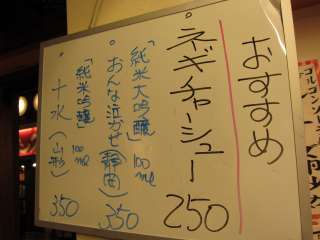 おすすめ
・ネギチャーシュー 250
「純米大吟醸」100ml
・おんな泣かせ(静岡) 350
「純米吟醸」100ml
・十水(山形) 350
ゴルゴンゾーラ